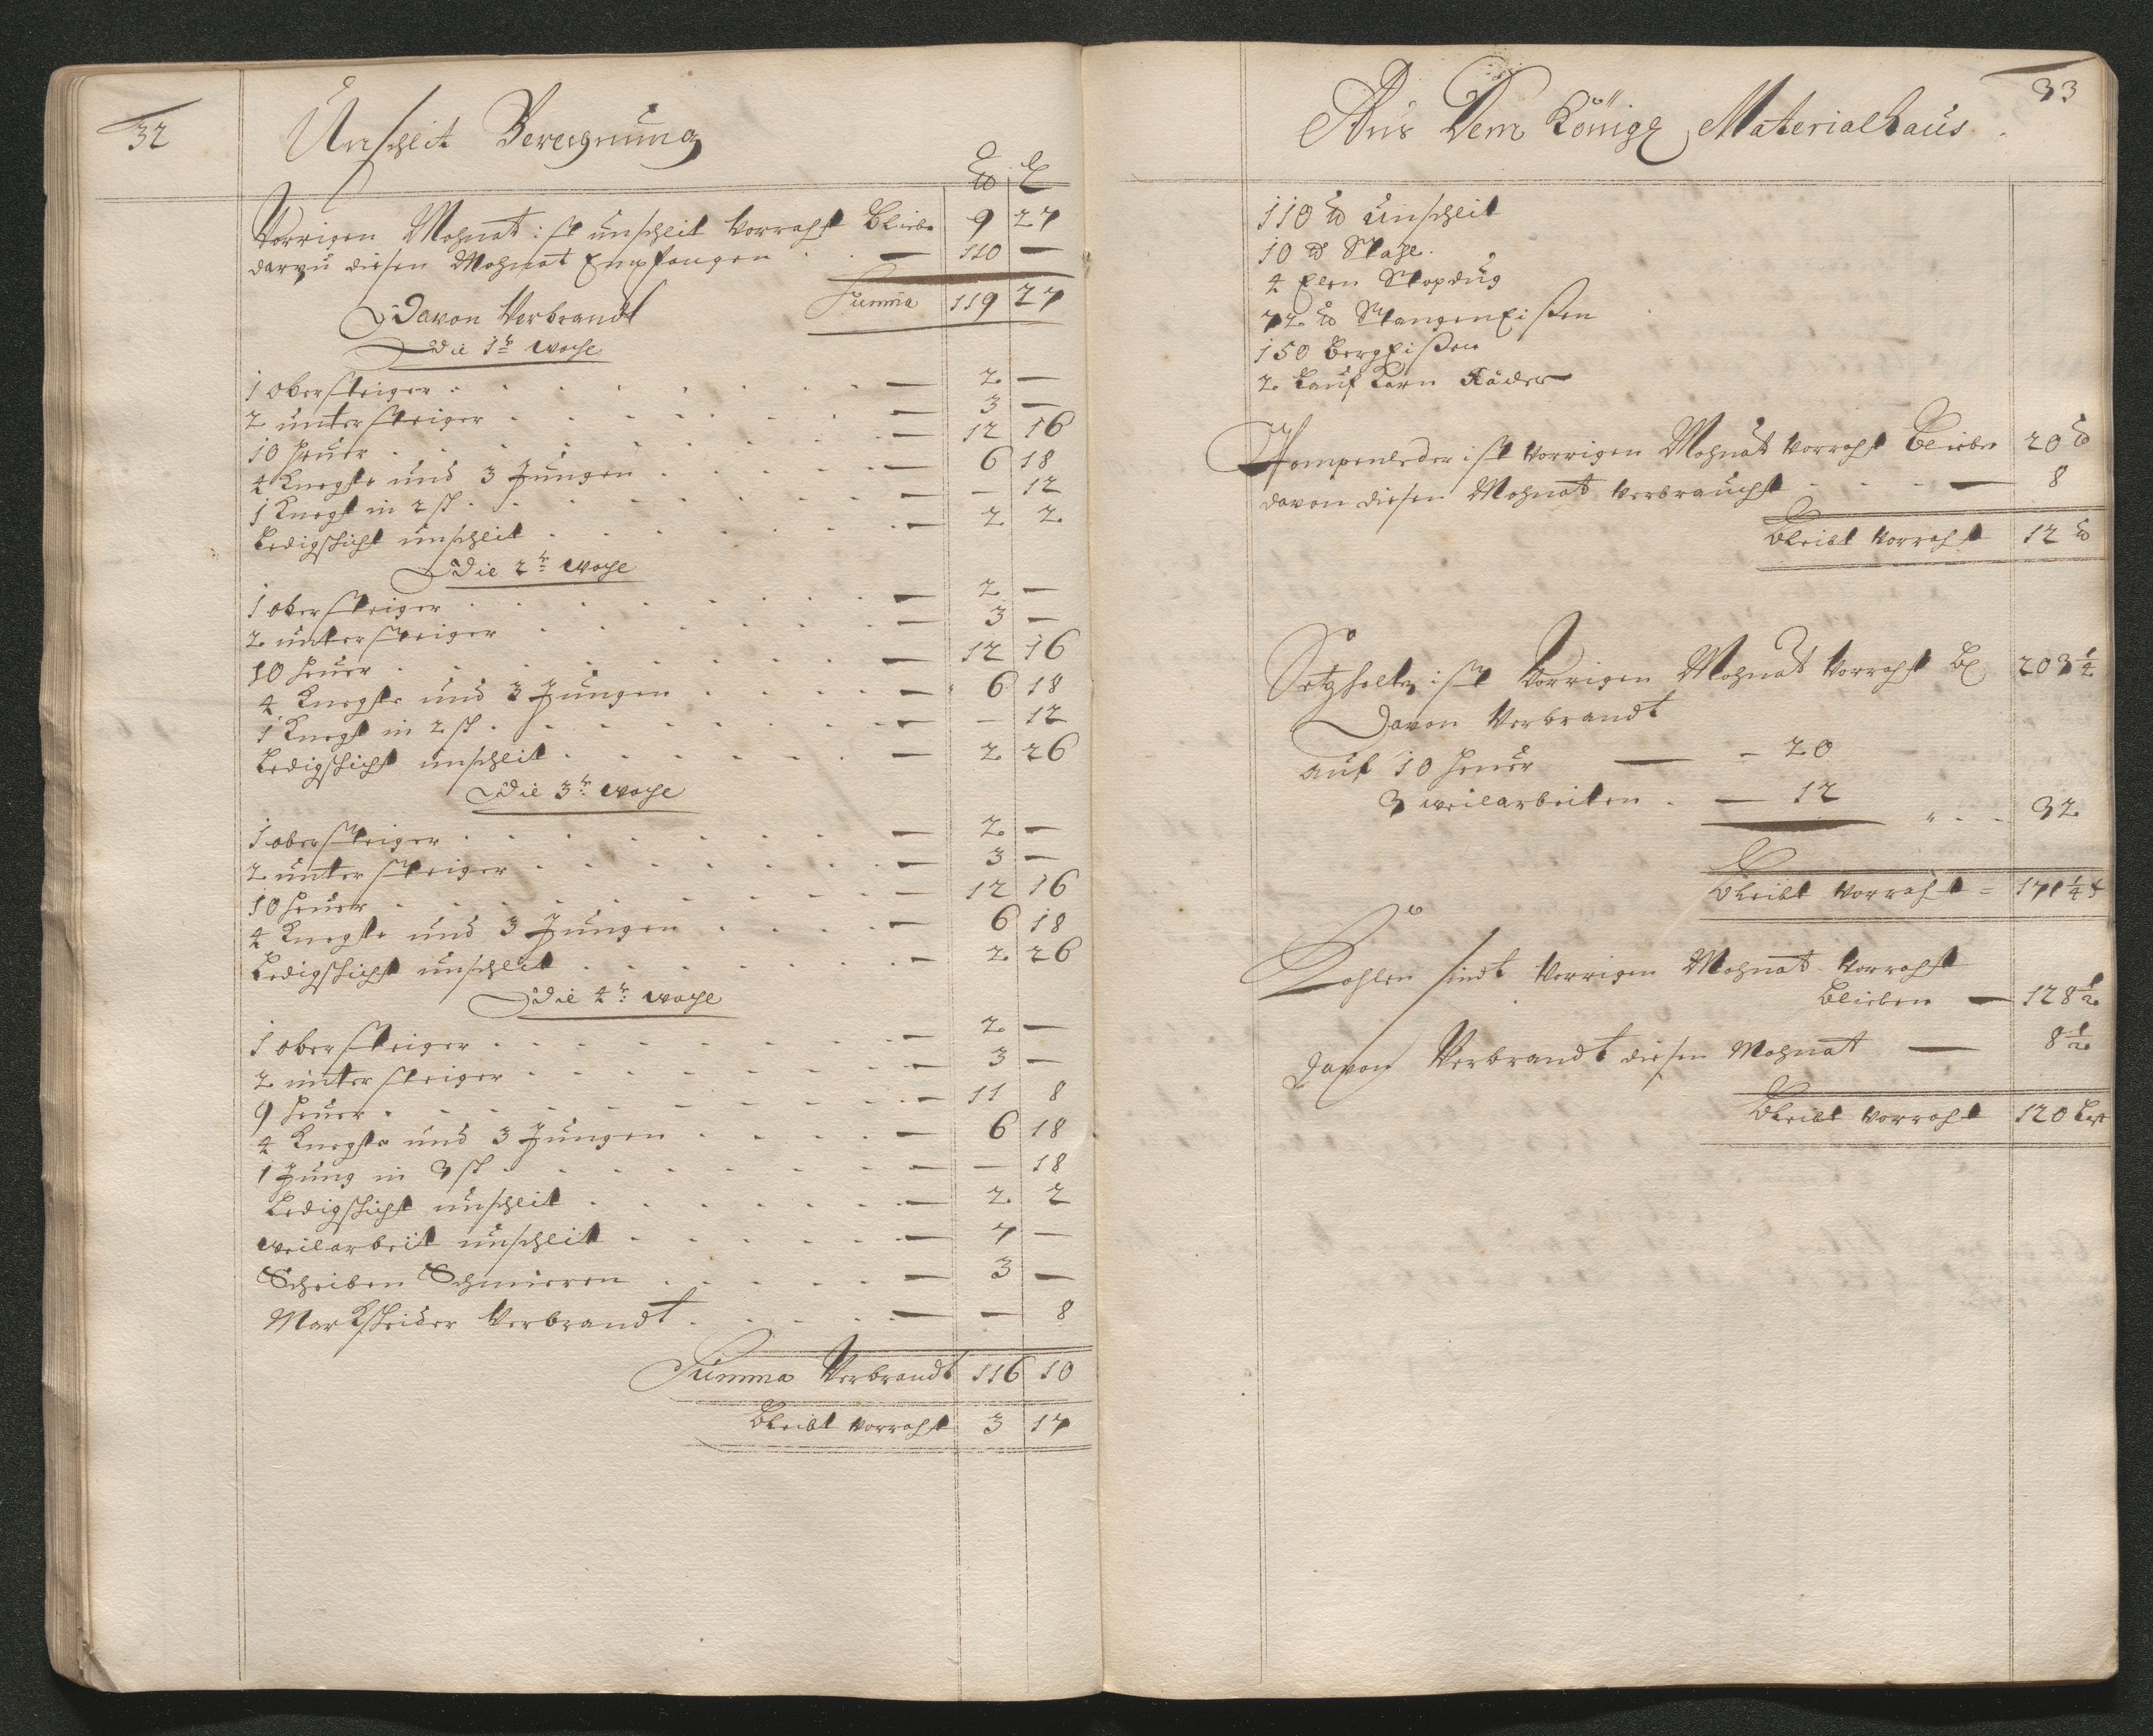 32
Unschlit Berergnung
℔ L
Vorrigen Mohnat ist unschlit Vorraht Blieben 9 27
darzu diesen Mohnat Empfangen 110 —
Summa 119 27
Davon Verbrandt
Die 1te woche
1 obersteiger . . . 2 —
2 untersteiger . . . 3 —
10 heuer . . . 12 16
4 Knechte und 3 Jungen . . . 6 18
1 Knecht in 2 sch . . . — 12
Ledigschicht unschlit . . . 2 2
Die 2te woche
1 obersteiger . . . 2 —
2 untersteiger . . . 3 —
10 heuer . . . 12 16
4 Knechte und 3 Jungen . . . 6 18
1 Knecht in 2 sch . . . — 12
Ledigschicht unschlit . . . 2 26
Die 3te woche
1 obersteiger . . . 2 —
2 untersteiger . . . 3 —
10 heuer . . . 12 16
4 Knechte und 3 Jungen . . . 6 18
Ledigschicht unschlit . . . 2 26
Die 4te woche
1 obersteiger . . . 2 —
2 untersteiger . . . 3 —
9 heuer . . . 11 8
4 Knechte und 3 Jungen . . . 6 18
1 Jung in 3 sch . . . — 18
Ledigschicht unschlit . . . 2 2
weilarbeit unschlit . . . 7 —
Scheiben Schmieren . . . 3 —
Markscheider Verbrandt . . . — 8
Summa Verbrandt 116 10
Bleibt Vorraht 3 17
33
Aus Dem Königl Materialhaus
110 ℔ Unschlit
10 ℔ Stahl
4 Elen Stopdug
72 ℔ StangenEisen
150 BergEisen
2 Laufkarn Räder
Pompenleder ist Vorrigen Mohnat Vorraht Blieben 20 ℔
davon diesen Mohnat Verbraucht . . . — 8
Bleibt Vorraht 12 ℔
Setzholtz ist Vorrigen Mohnat Vorraht Bl 203 1/4
Davon Verbrandt
auf 10 heuer — 20
3 weilarbeiten — 12
32
Bleibt Vorraht = 171 1/4
Kohlen sindt Vorrigen Mohnat Vorraht
Blieben — 128 1/2
Davon Verbrandt diesen Mohnat — 8 1/2
Bleibt Vorraht 120